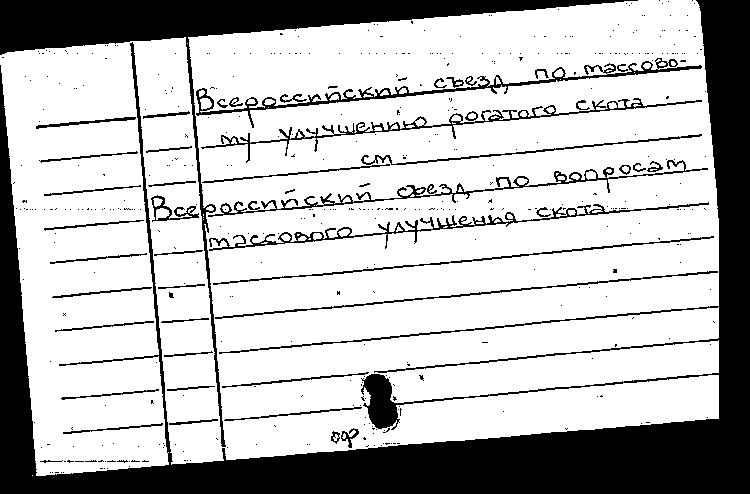 Всероссийский съезд по массово-
му улучшению рогатого скота.
см.
Всероссийский съезд по вопросам
массового улучшения скота